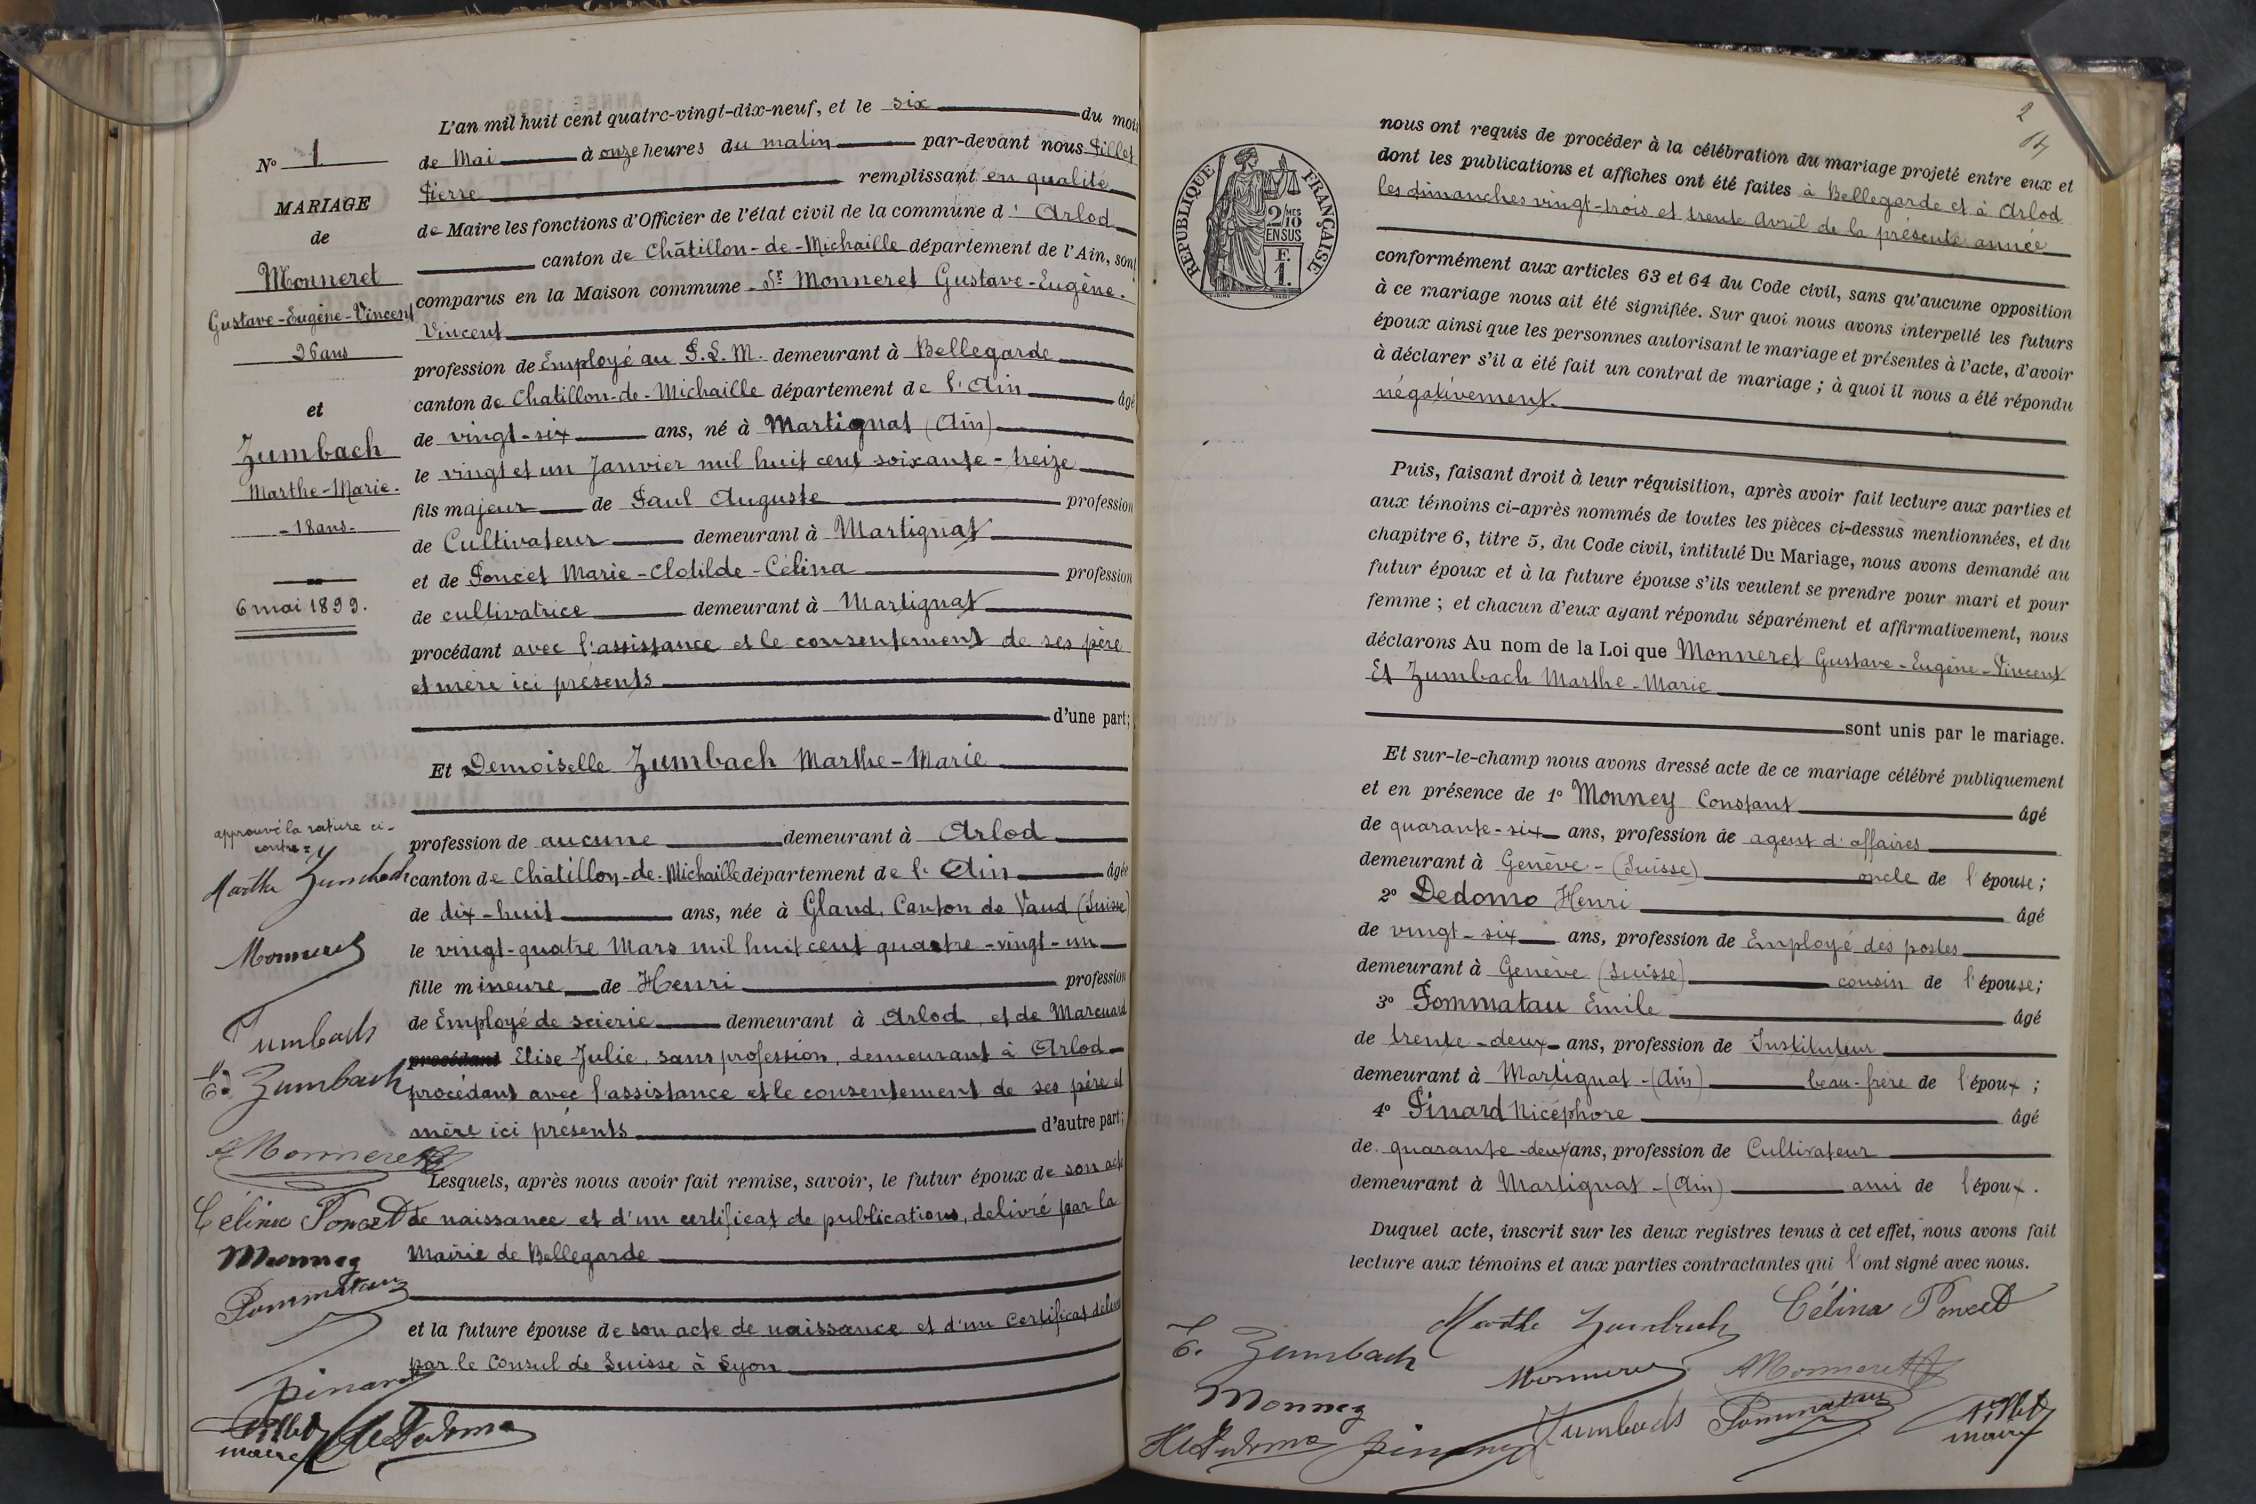 N° 1
MARIAGE
de
Monneret
Gustave-Eugène-Vincent
26 ans
et
Zumbach
Marthe-Marie.
- 18 ans -
6 mai 1899.
L'an mil huit cent quatre-vingt-dix-neuf, et le six du mois
de Mai à onze heures du matin par-devant nous Pillet
Pierre remplissant en qualité
de Maire les fonctions d'Officier de l'état civil de la commune d' Arlod
canton de Châtillon-de-Michaille département de l'Ain, sont
comparus en la Maison commune Sr Monneret Gustave-Eugène-
Vincent
profession de Employé au P.L.M. demeurant à Bellegarde
canton de Chatillon-de-Michaille département de l'Ain âgé
de vingt-six ans, né à Martignat (Ain)
le vingt et un Janvier mil huit cent soixante-treize
fils majeur de Paul Auguste profession
de Cultivateur demeurant à Martignat
et de Poncet Marie-Clotilde-Célina profession
de cultivatrice demeurant à Martignat
procédant avec l'assistance et le consentement de ses père
et mère ici présents
d'une part;
Et Demoiselle Zumbach Marthe-Marie
profession de aucune demeurant à Arlod
canton de Châtillon-de-Michaille département de l'Ain âgée
de dix-huit ans, née à Gland, Canton de Vaud (Suisse)
le vingt-quatre Mars mil huit cent quatre-vingt-un
fille mineure de Henri profession
de Employé de scierie demeurant à Arlod, et de Marcuard
procédant Elise Julie, sans profession, demeurant à Arlod
procédant avec l'assistance et le consentement de ses père et
mère ici présents d'autre part;
Lesquels, après nous avoir fait remise, savoir, le futur époux de son acte
de naissance et d'un certificat de publications, delivré par la
Mairie de Bellegarde
et la future épouse de son acte de naissance et d'un certificat délivré
par le Consul de Suisse à Lyon
approuvé la rature ci-
contre
Marthe Zumbach
Monneret
Zumbach
E. Zumbach
AMonneret
Célina Poncet
Monney
Pommatau
Pinard
Pillet
maire
H Dedomo
2
nous ont requis de procéder à la célébration du mariage projeté entre eux et
dont les publications et affiches ont été faites à Bellegarde et à Arlod
les dimanches vingt-trois et trente Avril de la présente année
RÉPUBLIQUE FRANÇAISE
2/10 MES
EN SUS
F.
1.
conformément aux articles 63 et 64 du Code civil, sans qu'aucune opposition
à ce mariage nous ait été signifiée. Sur quoi nous avons interpellé les futurs
époux ainsi que les personnes autorisant le mariage et présentes à l'acte, d'avoir
à déclarer s'il a été fait un contrat de mariage ; à quoi il nous a été répondu
négativement.
Puis, faisant droit à leur réquisition, après avoir fait lecture aux parties et
aux témoins ci-après nommés de toutes les pièces ci-dessus mentionnées, et du
chapitre 6, titre 5, du Code civil, intitulé Du Mariage, nous avons demandé au
futur époux et à la future épouse s'ils veulent se prendre pour mari et pour
femme ; et chacun d'eux ayant répondu séparément et affirmativement, nous
déclarons Au nom de la Loi que Monneret Gustave-Eugène-Vincent
Et Zumbach Marthe-Marie
sont unis par le mariage.
Et sur-le-champ nous avons dressé acte de ce mariage célébré publiquement
et en présence de 1° Monney Constant âgé
de quarante-six ans, profession de agent d'affaires
demeurant à Genève-(Suisse) oncle de l'épouse ;
2° Dedomo Henri âgé
de vingt-six ans, profession de Employé des postes
demeurant à Genève (Suisse) cousin de l'épouse;
3° Pommatau Emile âgé
de trente-deux ans, profession de Instituteur
demeurant à Martignat-(Ain) beau-frère de l'époux ;
4° Pinard Nicéphore âgé
de quarante-deux ans, profession de Cultivateur
demeurant à Martignat-(Ain) ami de l'époux.
Duquel acte, inscrit sur les deux registres tenus à cet effet, nous avons fait
lecture aux témoins et aux parties contractantes qui l'ont signé avec nous.
Marthe Zumbach Célina Poncet
E. Zumbach
Monneret AMonneret
Monney
Zumbach Pommatau Pillet
maire
H Dedomo Pinard